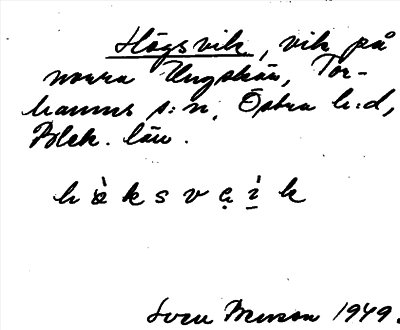 Högsvik, vik på
norra Ungskär, Tor-
hamns s:n, Östra h:d,
Blek. län.
h ò̤ k s v e̤ i̠̇ k
Sven Benson 1949.